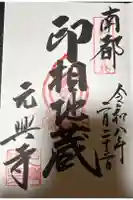 南都
印相地蔵
元興寺
令和八年
二月二十三日